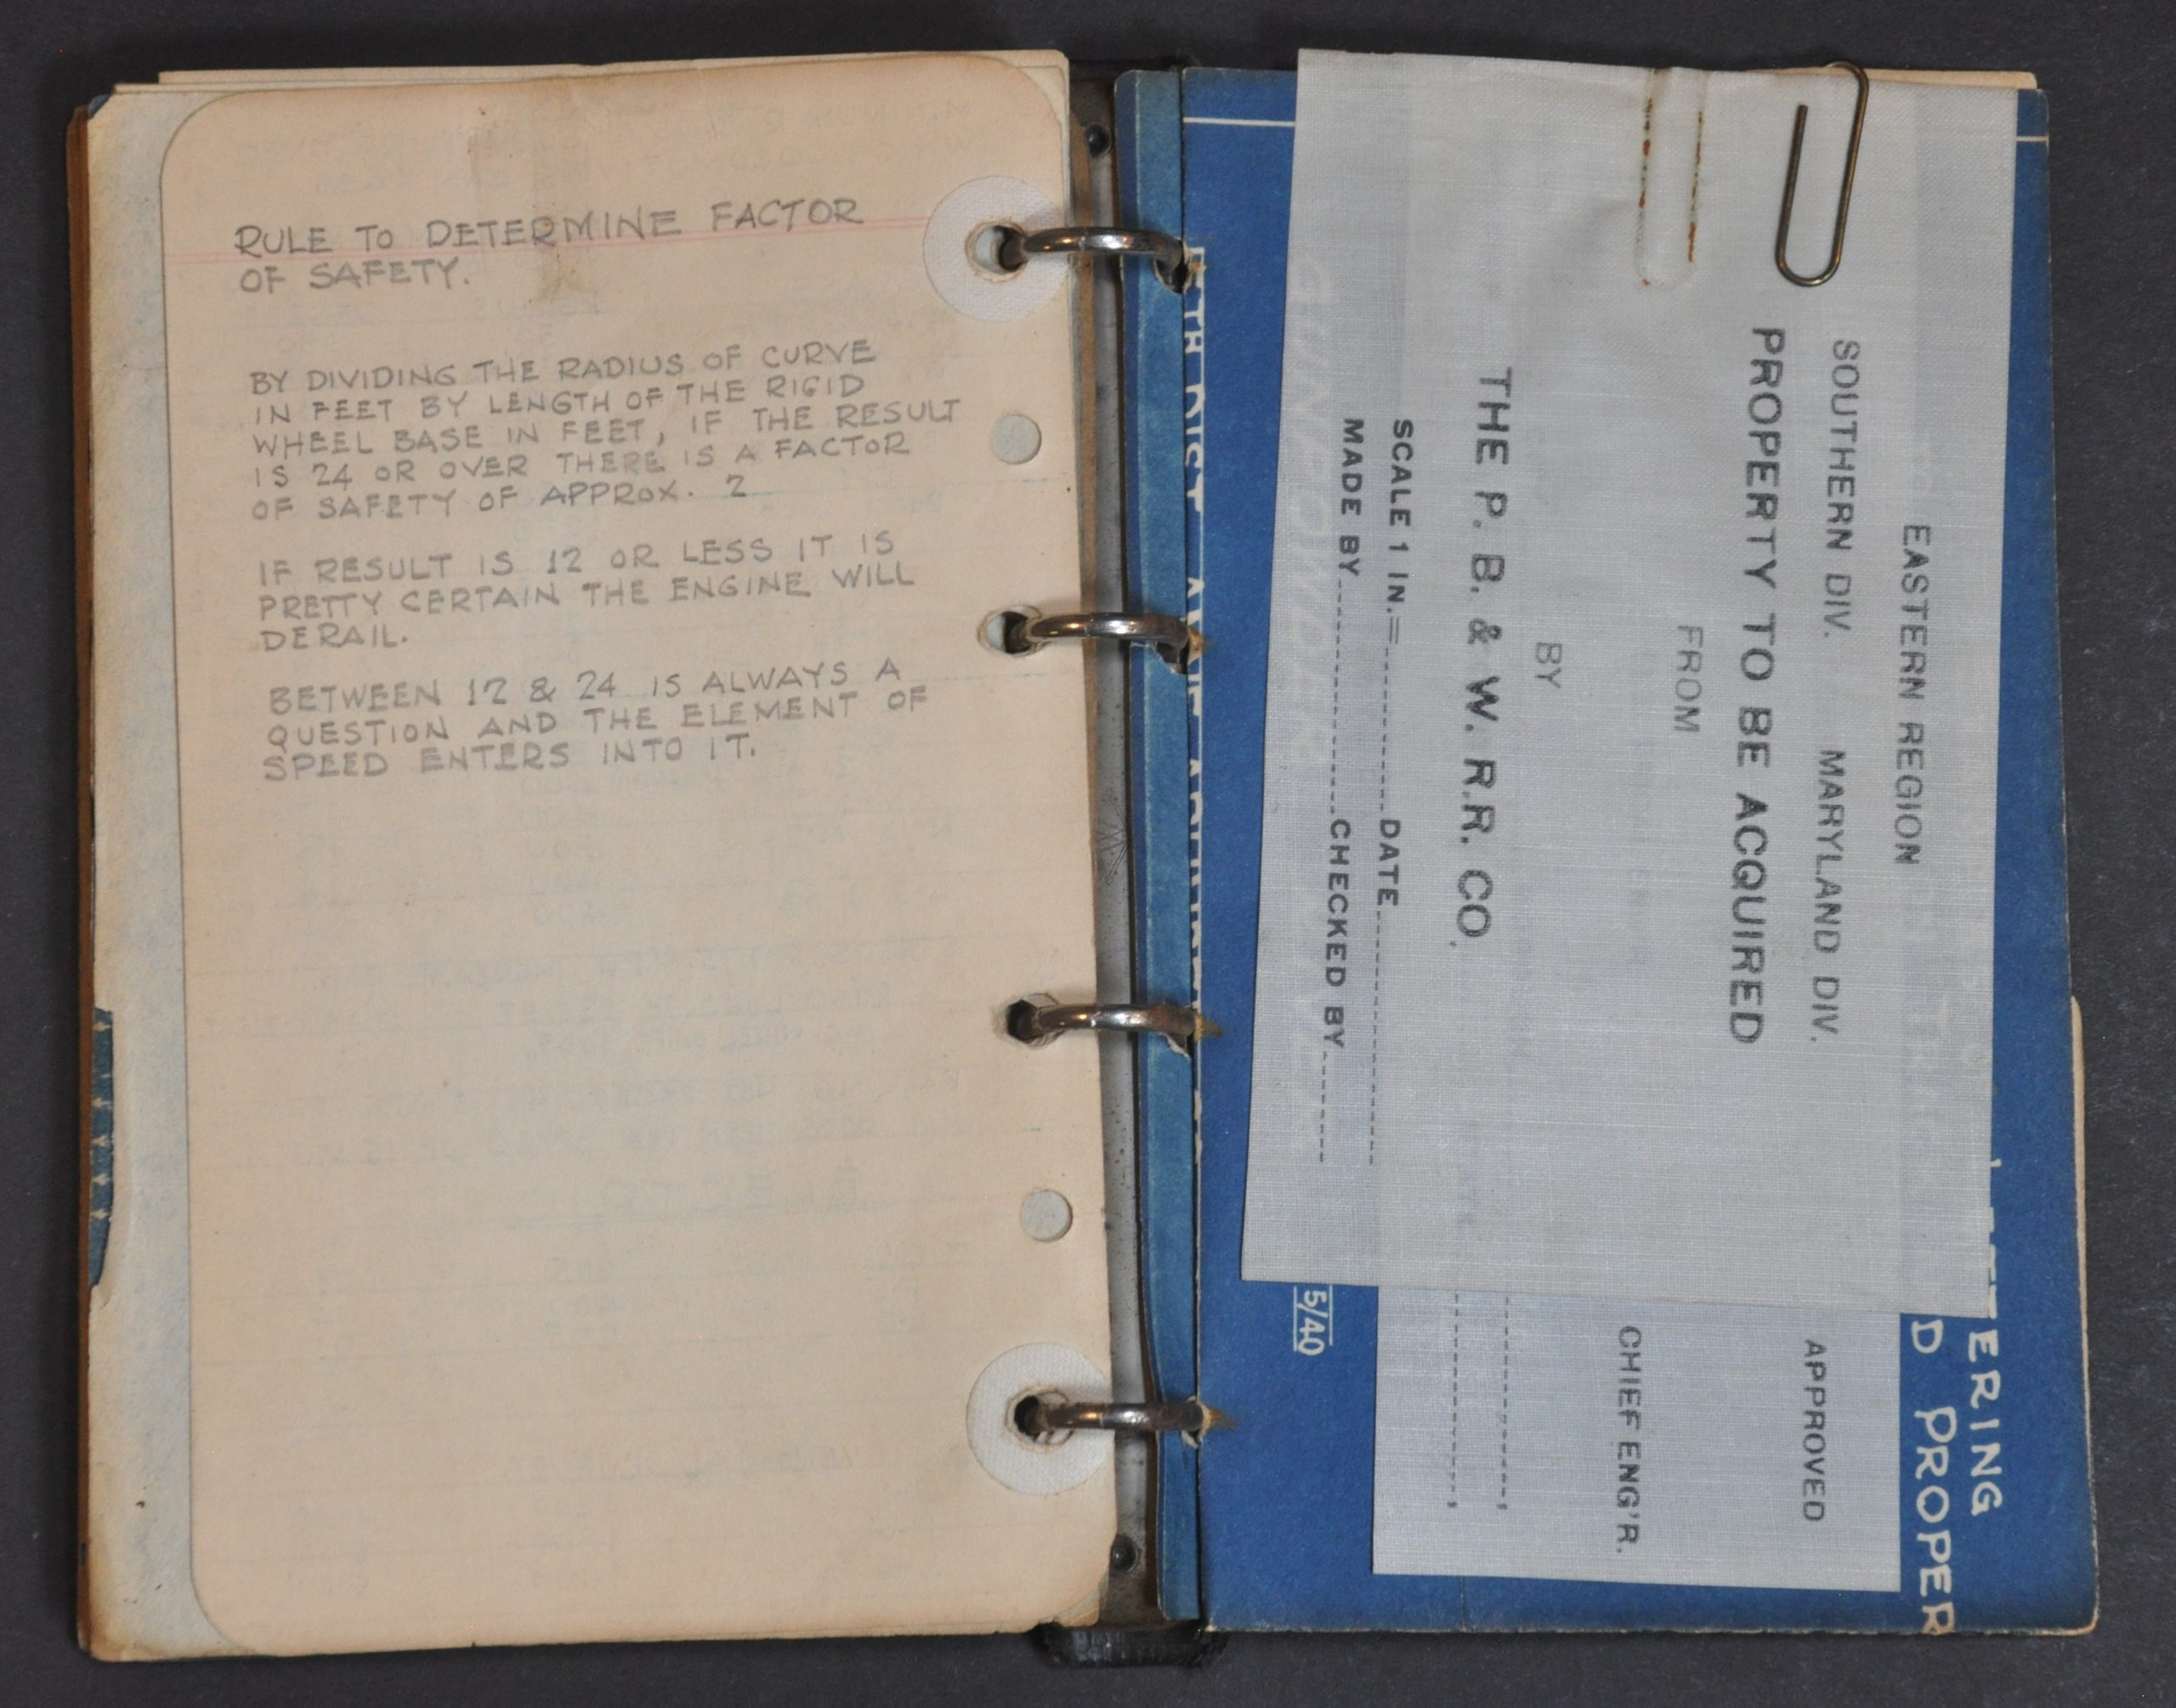 RULE TO DETERMINE FACTOR
OF SAFETY.
BY DIVIDING THE RADIUS OF CURVE
IN FEET BY LENGTH OF THE RIGID
WHEEL BASE IN FEET, IF THE RESULT
IS 24 OR OVER THERE IS A FACTOR
OF SAFETY OF APPROX. 2
IF RESULT IS 12 OR LESS IT IS
PRETTY CERTAIN THE ENGINE WILL
DERAIL.
BETWEEN 12 & 24 IS ALWAYS A
QUESTION AND THE ELEMENT OF
SPEED ENTERS INTO IT.
EASTERN REGION
SOUTHERN DIV. MARYLAND DIV.
PROPERTY TO BE ACQUIRED
FROM
BY
THE P. B. & W. R.R. CO.
SCALE 1 IN.= DATE
MADE BY CHECKED BY
APPROVED
CHIEF ENG'R.
ERING
D PROPER
5/40